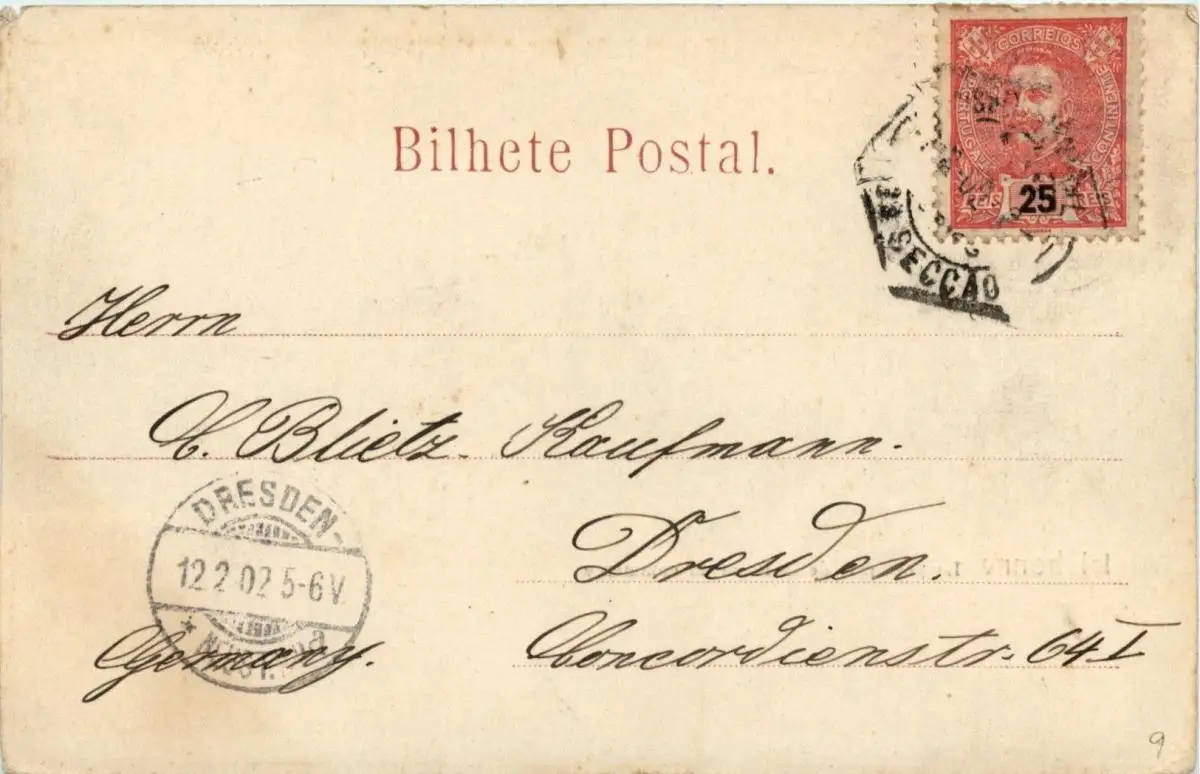 CORREIOS
PORTUGAL
CONTINENTE
REIS 25 REIS
Bilhete Postal.
SECCÃO
Herrn
C. Blietz Kaufmann.
DRESDEN-
12 2 02 5-6 V.
Dresden.
Germany.
Concordienstr. 64 I
9